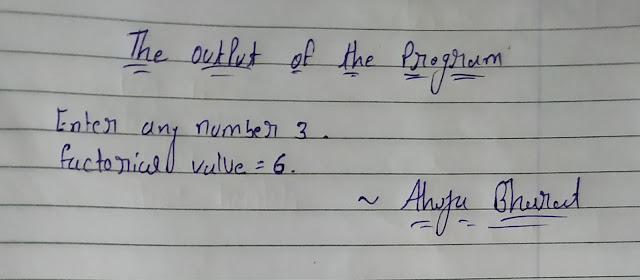 The output of the Program
Enter any number 3.
factorial value = 6.
~ Ahuja Bharat